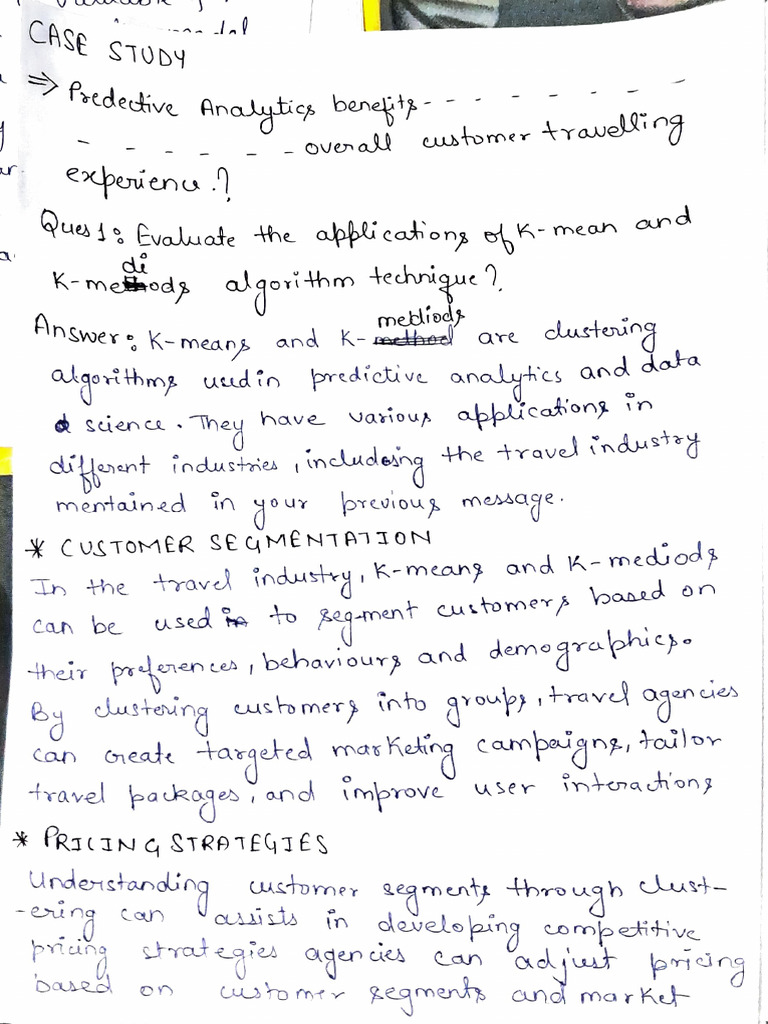 CASE STUDY
⇒ Predective Analytics benefits - - - - - - - -
- - - - - - overall customer travelling
experience.?
Ques 1: Evaluate the applications of K-mean and
K-mediods algorithm technique?
Answer: K-means and K-mediods are clustering
algorithms used in predictive analytics and data
science. They have various applications in
different industries, including the travel industry
mentained in your previous message.
* CUSTOMER SEGMENTATION
In the travel industry, K-means and K-mediods
can be used to segment customers based on
their preferences, behaviours and demographics.
By clustering customers into groups, travel agencies
can create targeted marketing campaigns, tailor
travel packages, and improve user interactions
* PRICING STRATEGIES
Understanding customer segments through clust-
-ering can assists in developing competitive
pricing strategies agencies can adjust pricing
based on customer segments and market